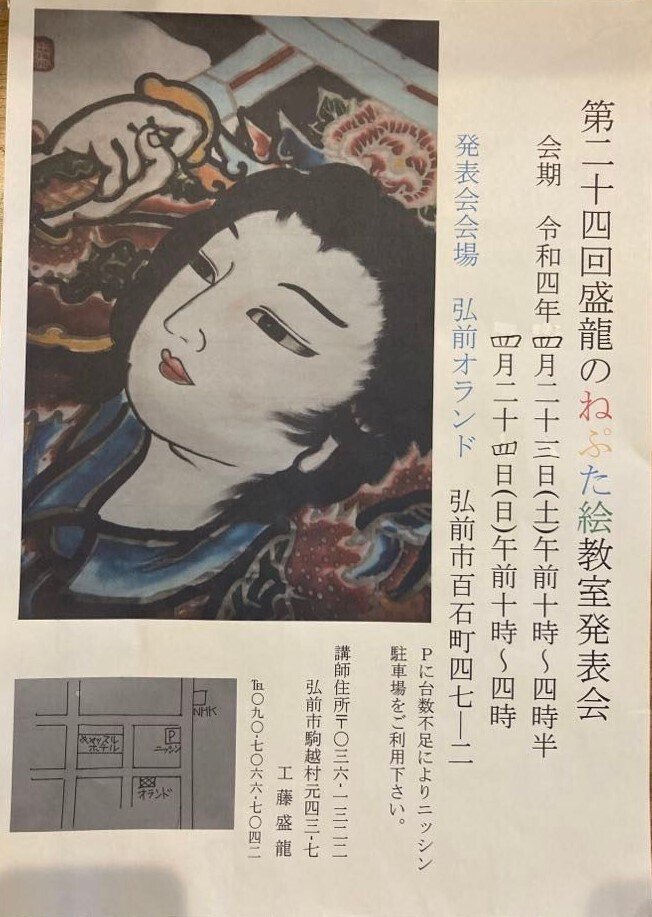 第二十四回盛龍のねぷた絵教室発表会
会期　令和四年 四月二十三日(土)午前十時～四時半
四月二十四日(日)午前十時～四時
発表会会場　弘前オランド　弘前市百石町四七―二
Pに台数不足によりニッシン
駐車場をご利用下さい。
講師住所〒〇三六-一三二二
弘前市駒越村元四三-七
工藤盛龍
℡〇九〇-七〇六六-七〇四二
NHK
P
ニッシン
キャッスル
ホテル
オランド